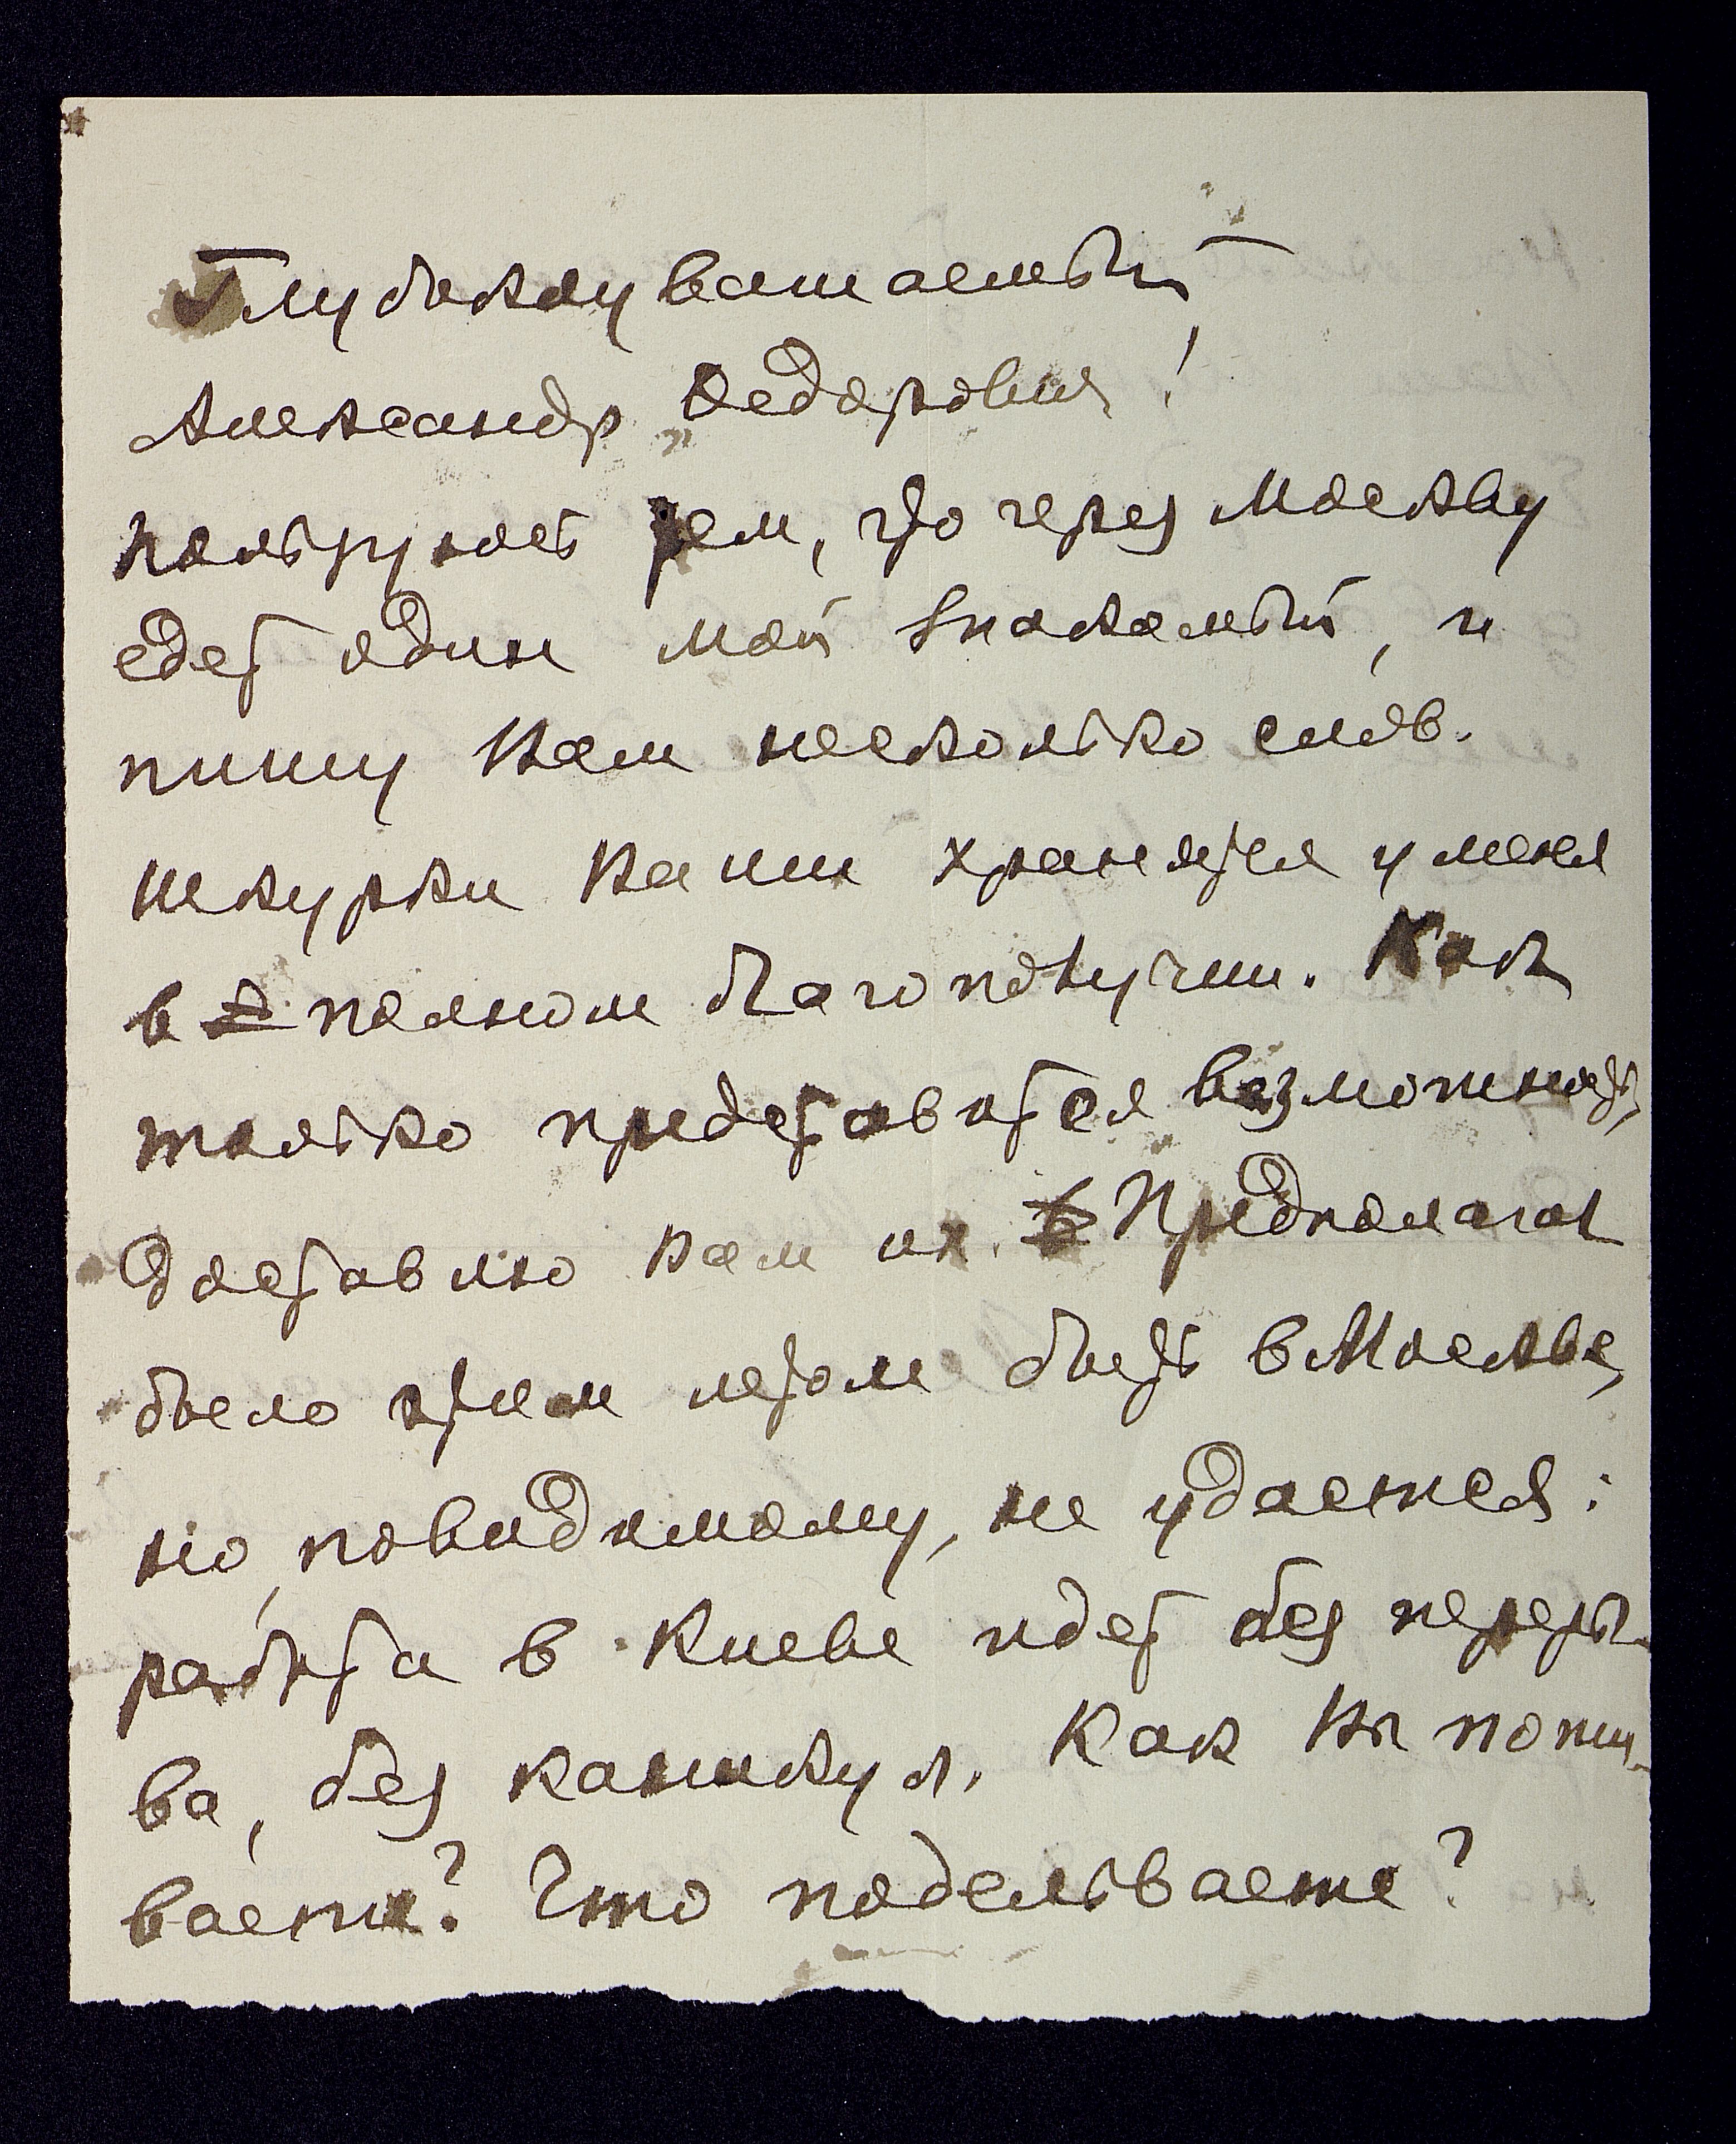 Глубокоуважаемый
Александр Федорович!
Пользуюсь тем, что через Москву
едет один мой знакомый, и
пишу Вам несколько слов.
Шкурки Ваши хранятся у меня
в полном благополучии. Как
только представится возможность,
доставлю Вам их. Предполагал
было этим летом быть в Москве,
но, повидимому, не удается:
работа в Киеве идет без переры-
ва, без каникул. Как Вы пожи-
ваете? Что поделываете?